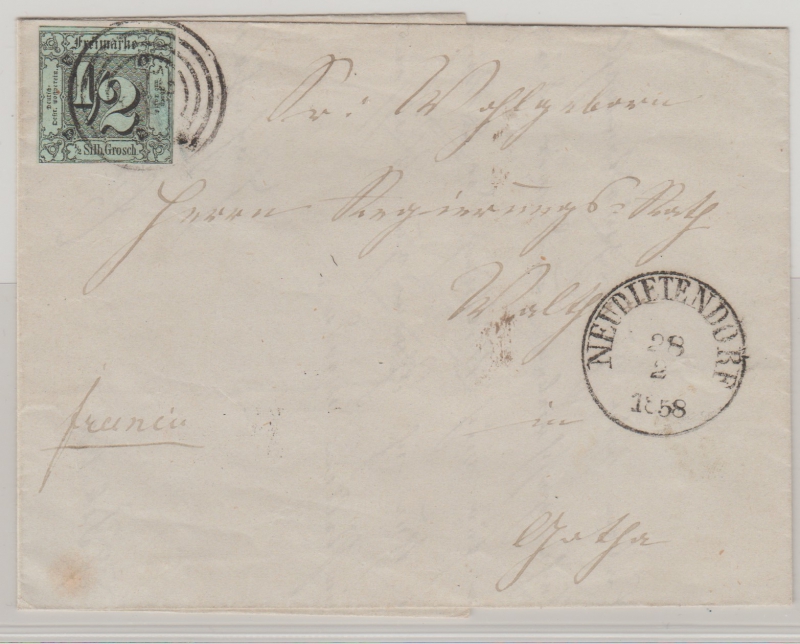 Freimarke
1/2
½ Silb. Grosch
Sr: Wohlgeborn
Herrn Regierungs-Rath
Walther
NEUDIETENDORF
28
2
1858
franco
in
Gotha